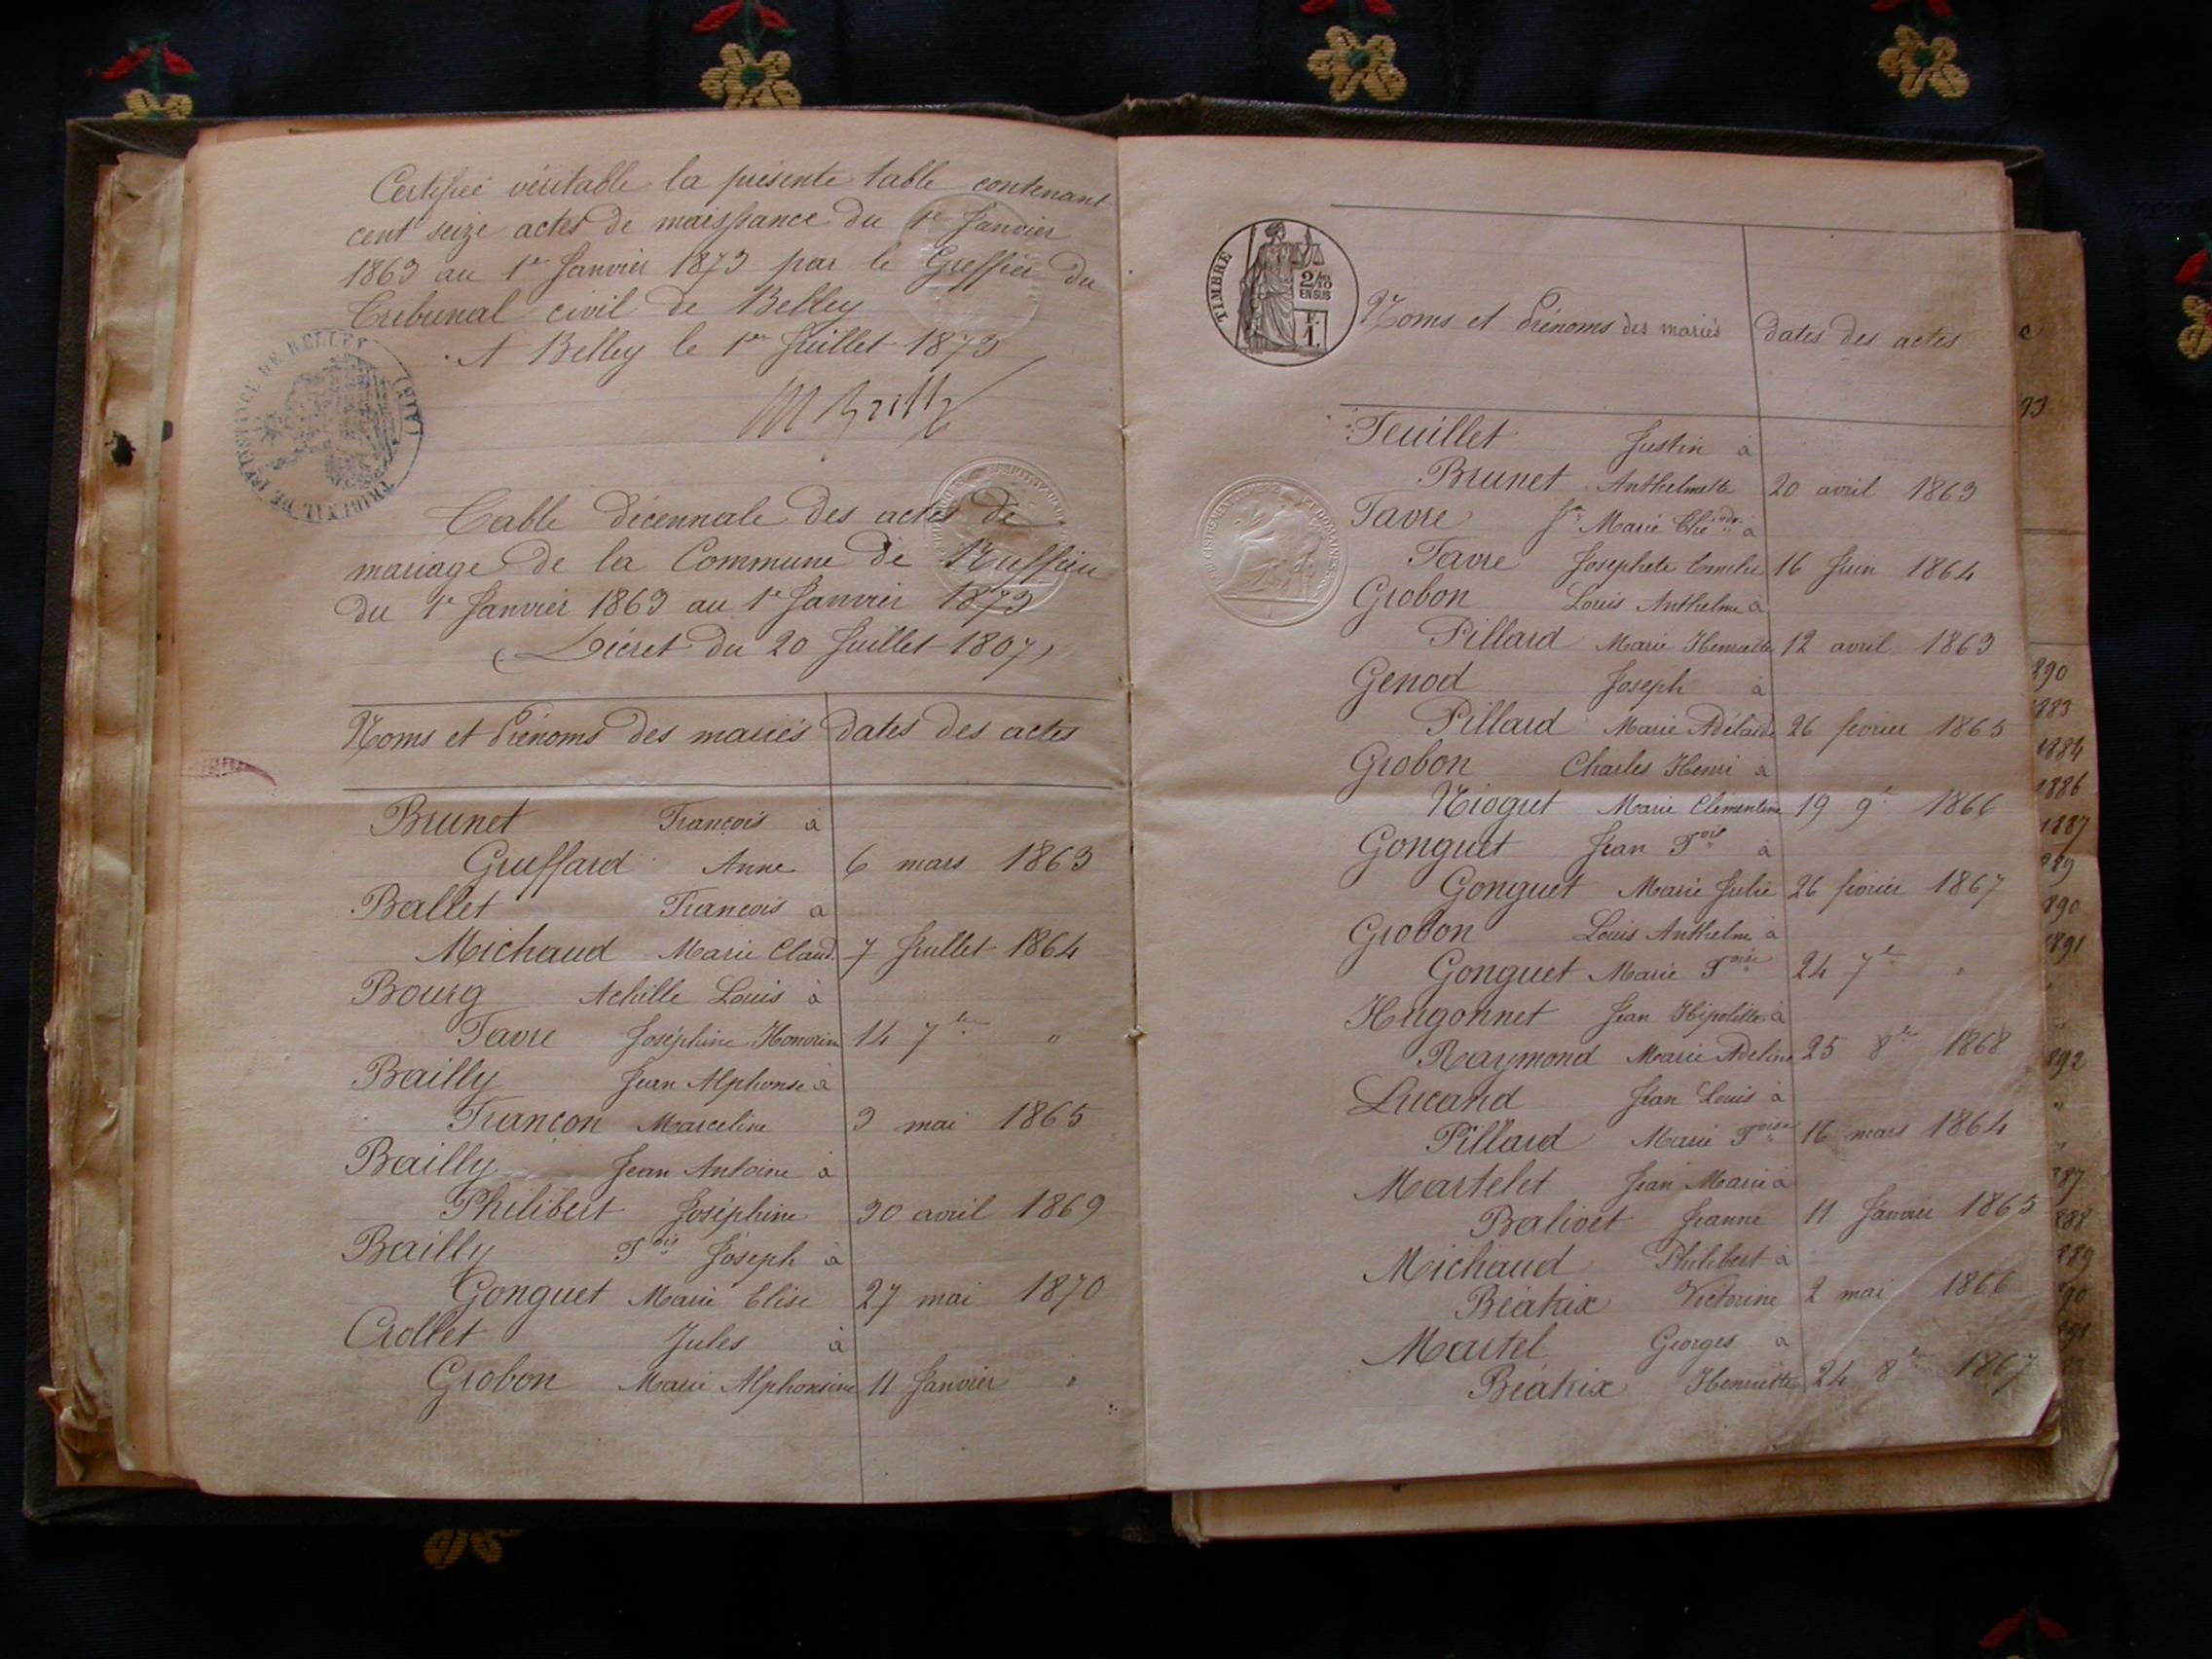 Certifié véritable la présente table contenant
cent seize actes de naissance du 1er Janvier
1863 au 1er Janvier 1873 par le Greffier du
Tribunal civil de Belley
A Belley le 1er Juillet 1873
TRIBUNAL DE 1ère INSTANCE DE BELLEY (AIN)
Table décennale des actes de
mariage de la Commune de Ruffieu
du 1er Janvier 1863 au 1er Janvier 1873
(Décret du 20 Juillet 1807)
Noms et Prénoms des mariés dates des actes
Brunet François à
Gruffard Anne 6 mars 1863
Ballet François à
Michaud Marie Claud. 7 Juillet 1864
Bourg Achille Louis à
Favre Joséphine Honorine 14 7bre "
Bailly Jean Alphonse à
Françon Marceline 3 mai 1865
Bailly Jean Antoine à
Philibert Joséphine 30 avril 1869
Bailly Fois Joseph à
Gonguet Marie Elise 27 mai 1870
Crollet Jules à
Grobon Marie Alphonsine 11 Janvier "
TIMBRE
2/10
EN SUS
F.
1.
Noms et Prénoms des mariés dates des actes
Feuillet Justin à
Brunet Anthelmette 20 avril 1863
Favre Marie à
Favre Josephete Emelie 16 Juin 1864
Grobon Louis Anthelme à
Pillard Marie Henriette 12 avril 1863
Genod Joseph à
Pillard Marie Adélaïde 26 février 1865
Grobon Charles Henri à
Nioguet Marie Clémentine 19 9bre 1866
Gonguet Jean Fois à
Gonguet Marie Julie 26 février 1867
Grobon Louis Anthelme à
Gonguet Marie Foise 24 7bre "
Hugonnet Jean Hipolitte à
Raymond Marie Adeline 25 8bre 1868
Lucand Jean Louis à
Pillard Marie Foise 16 mars 1864
Martelet Jean Marie à
Balivet Jeanne 11 Janvier 1865
Michaud Philibert à
Béatrix Victorine 2 mai 1866
Martel Georges à
Béatrix Henriette 24 8bre 1867
93
890
883
1884
1886
1887
889
890
1891
892
887
888
889
90
891